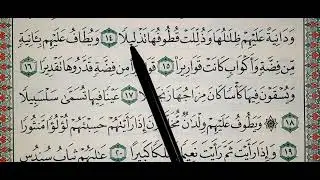 وَدَانِيَةً عَلَيْهِمْ ظِلَٰلُهَا وَذُلِّلَتْ قُطُوفُهَا تَذْلِيلًا ١٤ وَيُطَافُ عَلَيْهِم بِـَٔانِيَةٍ
مِّن فِضَّةٍ وَأَكْوَابٍ كَانَتْ قَوَارِيرَا۠ ١٥ قَوَارِيرَا۟ مِن فِضَّةٍ قَدَّرُوهَا تَقْدِيرًا ١٦
وَيُسْقَوْنَ فِيهَا كَأْسًا كَانَ مِزَاجُهَا زَنجَبِيلًا ١٧ عَيْنًا فِيهَا تُسَمَّىٰ سَلْسَبِيلًا
١٨ وَيَطُوفُ عَلَيْهِمْ وِلْدَٰنٌ مُّخَلَّدُونَ إِذَا رَأَيْتَهُمْ حَسِبْتَهُمْ لُؤْلُؤًا مَّنثُورًا
١٩ وَإِذَا رَأَيْتَ ثَمَّ رَأَيْتَ نَعِيمًا وَمُلْكًا كَبِيرًا ٢٠ عَٰلِيَهُمْ ثِيَابُ سُندُسٍ